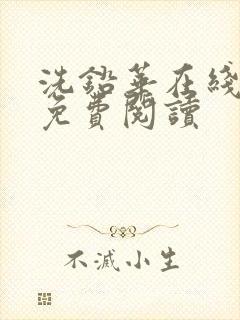 洗鉛華在綫
免費閱讀
不滅小生